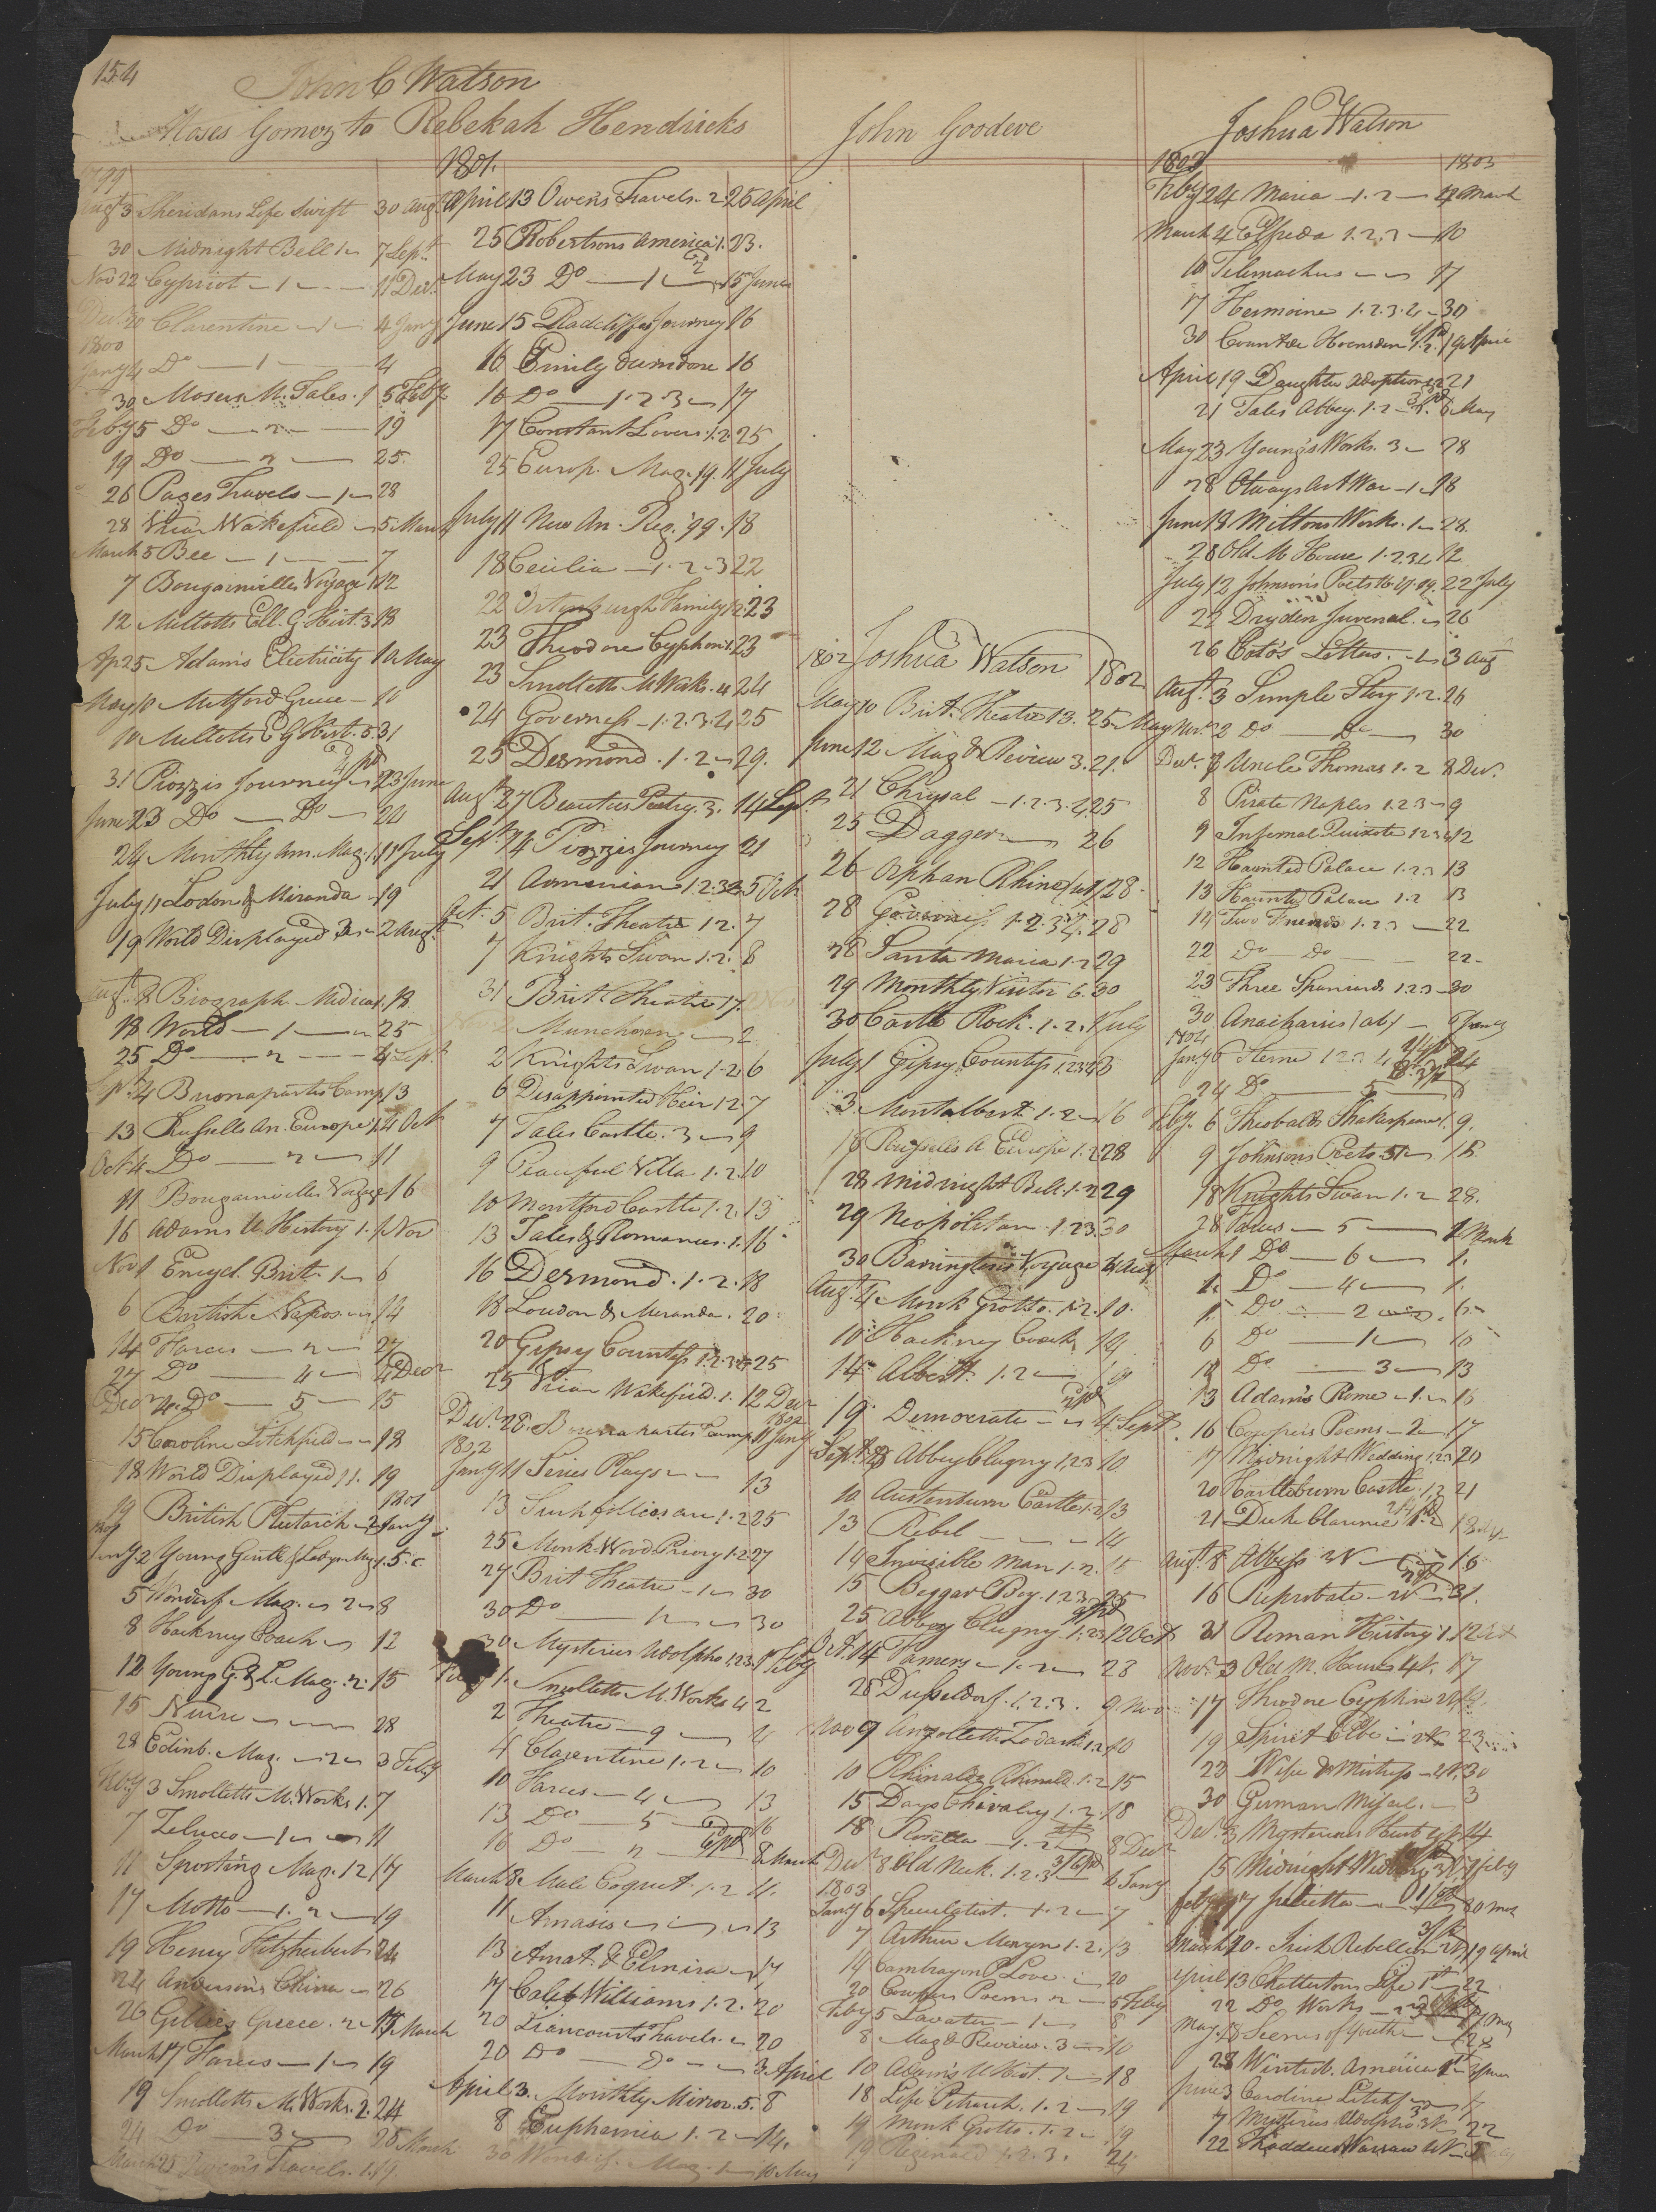 154
John C Watson
Moses Gomez to Rebekah Hendricks
1799
Augt 3 Sheridans Life Swift 30 Augt
30 Midnight Bell 1 7 Sept
Nov 22 Cypriot 1 11 Decr
Decr 20 Clarentine 1 4 Jany
1800
Jany 4 Do 1 4
30 Mosers M. Tales. 1 5 Feby
Feby 5 Do 2 19
19 Do 2 25
26 Pages Travels 1 28
28 Vicar Wakefield 5 March
March 5 Bee 1 7
7 Bougainvilles Voyage 12
12 Millotts Ell. G. Hist. 3 18
Ap 25 Adams Electricity 10 May
May 10 Mitford Greece 10
10 Millotts E G Hist. 5. 31
31 Piozzis Journey 23 June
June 23 Do Do 24
24 Monthly Am. Mag. 1 11 July
July 11 Lodon & Miranda 19
19 World Displayed 2 Augt
Augt 2 Biograph. Medica 1. 18
18 World 1 25
25 Do 2 4 Sept
Sept 4 Buonapartes Camp 13
13 Russells An. Europe 1. 4 Oct
Oct 4 Do 2 11
11 Bougainvilles Voyage 16
16 Adams U. History 1. 1 Nov
Nov 1 Encycl. Brit. 1 6
6 British Nepos 14
14 Farces 2 27
27 Do 4 4 Decr
Decr 4. Do 5 15
15 Caroline Litchfield 18
18 World Displayed 11. 19
19 British Plutarch 2 Jany
1801
Jany. 2 Young Gentle & Ladys Mag 1. 5
5 Wonderf. Mag. 2 8
8 Hackney Coach 12
12 Young G. & L. Mag. 2. 15
15 Nurse 28
28 Edinb. Mag. 2 3 Feby
Feby 3 Smolletts M. Works 1. 7
7 Zelucco 1 11
11 Sporting Mag. 12 17
17 Motto 1. 2 19
19 Henry Fitzherbert 24
24 Andersons China 26
26 Gillies Greece. 2 17 March
March 17 Farces 1 19
19 Smolletts M. Works. 2. 24
24 Do 3 25 March
March 25 Owen's Travels. 1. 19.
1801.
April 13 Owens Travels. 2. 25 April
25 Robertsons America 1. 23.
May 23 Do 1 15 June
June 15 Radcliffes Journey 16
16 Emily Dunsdore 16
16 Do 1. 2 3 17
17 Constant Lovers 1. 2. 25
25 Europ. Mag. 19. 11 July
July 11 New An. Reg. '99. 18
18 Cecilia 1. 2. 3 22
22 Ortenburgh Family 1. 2. 23
23 Theodore Cyphon 1. 23
23 Smolletts M Works. 4 24
24 Governess 1. 2. 3. 4 25
25 Desmond. 1. 2 29.
Augt 27 Beauties Poetry. 3. 14 Sept
Sept 14 Piozzis Journey 21
21 Armenian 1. 2. 3 5 Oct
Oct. 5 Brit. Theatre 12. 7
7 Knights Swan 1. 2. 8
31 Brit. Theatre 17.
Munchosen 2
2 Knights Swan 1. 2 6
6 Disappointed Heir 1 2. 7
7 Tales Castle. 3 9
9 Peaceful Villa 1. 2. 10
10 Montford Castle 1. 2. 13
13 Tales & Romances. 1. 16
16 Desmond. 1. 2. 18
18 Loudon & Miranda. 20
20 Gipsy Countess 1. 2. 3. 4 25
25 Vicar Wakefield. 1. 12 Decr
Decr 28. Buonapartes Camp 11 Jany 1802
1802
Jany 11 Series Plays 13
13 Such follies are 1. 2 25
25 Monk Wood Priory 1. 2 27
27 Brit Theatre 1 30
30 Do 12 30
30 Mysteries Udolpho 1. 2. 3. 1 Feby
Feby 1. Smolletts M. Works 4 2
2 Theatre 9 4
4 Clarentine 1. 2 10
10 Farces 4 13
13 Do 5 16
16 Do 2 8 March
March 8 Male Coquet. 1. 2 11.
11 Amasis 13
13 Amat. & Elmira 17
17 Caleb Williams 1. 2. 20
20 Liancourts Travels 20
20 Do Do 3 April
April 3. Monthly Mirror. 5. 8
8 Euphemia 1. 2 14.
30 Wonderf. Mag. 1 10 May
John Goodeve
1802 Joshua Watson 1802
May 10 Brit. Theatre 13. 25 May
June 12 Mag & Review 3. 21.
21 Chrysal 1. 2. 3. 4. 25
25 Dagger 26
26 Orphan Rhine 28
28 Governess. 1. 2. 3. 4. 28
28 Santa Maria 1. 2 29
29 Monthly Visitor 6. 30
30 Castle Rock. 1. 2. 1 July
July 1 Gipsy Countess 1. 2. 3. 4 3
3 Montalbert 1. 2 16
16 Russells A Europe 1. 2 28
28 Midnight Bell. 1. 2 29
29 Neopolitan. 1. 2. 3. 30
30 Barringtons Voyage 4 Aug
Augt. 4 Monk Grotto. 1. 2. 10.
10 Hackney Coach 14
14 Albert. 1. 2 19
19 Democrate 4 Sept
Sept 8 Abbey Clugny 1, 2 3 10
10 Austenburn Castle 1. 2 13
13 Rebel 14
14 Invisible Man 1. 2. 15
15 Beggar Boy. 1. 2. 3. 25
25 Abbey Clugny 1. 2. 3 12 Oct
Oct. 14 Tomery 1. 2 28
28 Dusseldorf. 1. 2. 3. 9 Nov
Nov 9 Anzoletta Zodaski 1. 2 10
10 Rhinaldo Rhinald. 1. 2 15
15 Days Chivalry 1. 2. 18
18 Rosella 1. 2 8 Decr
Decr 8 Old Nick. 1. 2. 3 6 Jany
1803
Jany 6 Speculatist. 1. 2 7
7 Arthur Mervyn 1. 2. 13
14 Cambray on P Love. 20
20 Cowpers Poems 2 5 Feby
Feby 5 Lavater 1 8
8 Mag & Review. 3 10
10 Adams U Hist. 1 18
18 Life Petrarch. 1. 2 19
19 Monk Grotto. 1. 2 19
19 Reginald 1. 2. 3. 24
Joshua Watson
1803 1803
Feby 24 Maria 1. 2 4 March
March 4 Elfrida 1. 2. 3 10
10 Telemachus 17
17 Hermoine 1. 2. 3. 4 30
30 Count de Hoensdern 1. 2. 19 April
April 19 Daughter Adoption 21
21 Tales Abbey. 1. 2 6 May
May 23 Young's Works. 3 28
28 Otways Art War 1 18
June 18 Miltons Works. 1 28.
28 Old. M. House 1. 2 3 4 12
July 12 Johnsons Poets 16. 17. 19. 22 July
22 Dryden Juvenal. 26
26 Cato's Letters. 3 Aug
Augt. 3 Simple Story 1. 2. 26
Nov. 2 Do Do 30
Decr. 3 Uncle Thomas 1. 2 8 Decr.
8 Pirate Naples 1. 2. 3 9
9 Infernal Quixote 1 2 3 4 12
12 Haunted Palace 1. 2 3 13
13 Haunted Palace 1. 2 13
14 Two Friends 1. 2. 3 22
22 Do Do 22
23 Three Spaniards 1. 2. 3 30
30 Anacharsis (ab) 6 Jany
1804
Jany 6 Sterne 1 2 3 4 24
24 Do 5 6
Feby. 6 Theobalds Shakespeare 1. 9.
9 Johnsons Poets 18.
18 Knights Swan 1. 2 28.
28 Tales 5 1 March
March 1 Do 6 1.
1. Do 4 1.
1. Do 2 6
6 Do 1 10
10 Do 3 13
13 Adams Rome 1. 16
16 Cowpers Poems 2 17
17 Midnight Wedding 1, 2 3 20
20 Hartlebourn Castle. 1, 2 21
21 Duke Clarence 18
Augt. 8 Abbess 16
16 Reprobate 31.
31 Roman History 1. 12 Oct
Nov. 3 Old M. House 17
17 Theodore Cyphon
19 Spirit Elbe 23
23 Wife & Mistress 30
30 German Misel. 3
Decr. 3 Mysterious Husb 14
15 Midnight Wedd 7 Feby
Feby 7 Julietta
March 20. Irish Rebellion 19 April
April 13 Chattertons Life 1st 22
22 Do. Works
May. 18 Scenes of Youth 28
28 Winterb. America 3 June
June 3 Caroline Litchf 7
7 Mysteries Udolpho 22
22 Thaddeus Warsaw